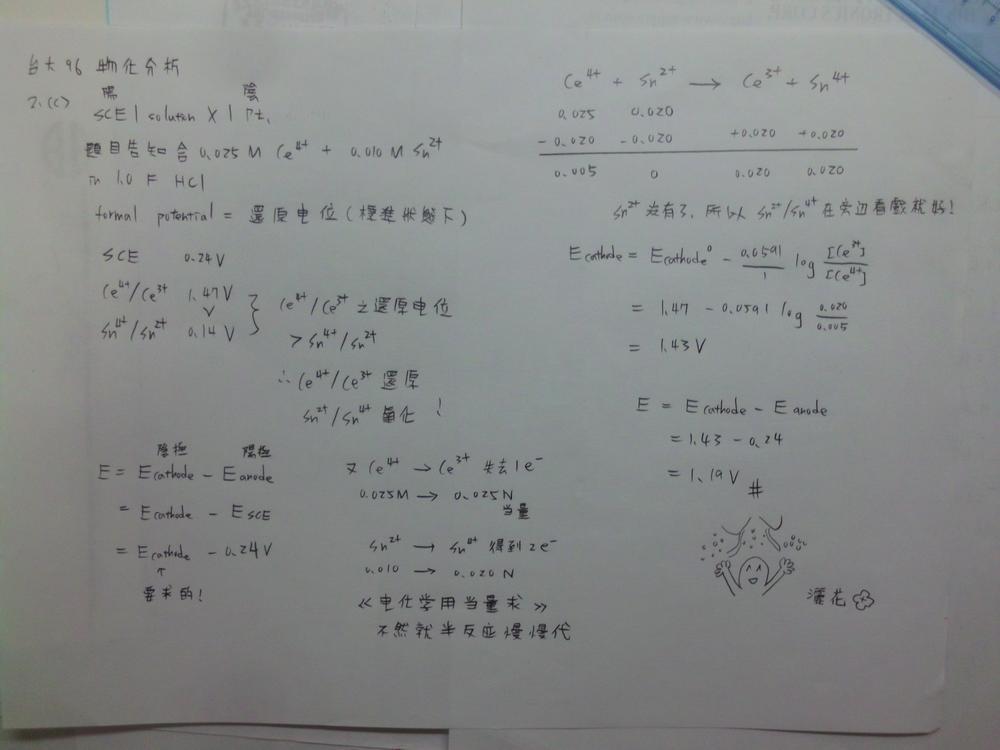 台大 96 物化分析
2.(c)
陽 陰
SCE | solution X | Pt,
題目告知含 0.025 M Ce⁴⁺ + 0.010 M Sn²⁺
in 1.0 F HCl
formal potential = 還原电位(標準狀態下)
SCE 0.24V
Ce⁴⁺/Ce³⁺ 1.47V
Sn⁴⁺/Sn²⁺ 0.14 V
Ce⁴⁺/Ce³⁺ 之還原电位
> Sn⁴⁺/Sn²⁺
∴ Ce⁴⁺/Ce³⁺ 還原
Sn²⁺/Sn⁴⁺ 氧化 !
陰極 陽極
E = Ecathode - Eanode
= Ecathode - ESCE
= Ecathode - 0.24V
↑
要求的!
又 Ce⁴⁺ → Ce³⁺ 失去 1e⁻
0.025M → 0.025N
当量
Sn²⁺ → Sn⁴⁺ 得到 2e⁻
0.010 → 0.020 N
《电化学用当量求》
不然就半反应慢慢代
Ce⁴⁺ + Sn²⁺ → Ce³⁺ + Sn⁴⁺
0.025 0.020
-0.020 -0.020 +0.020 +0.020
0.005 0 0.020 0.020
Sn²⁺ 沒有了, 所以 Sn²⁺/Sn⁴⁺ 在旁边看戲就好!
Ecathode = Ecathode⁰ - 0.0591/1 log [Ce³⁺]/[Ce⁴⁺]
= 1.47 - 0.0591 log 0.020/0.005
= 1.43 V
E = Ecathode - Eanode
= 1.43 - 0.24
= 1.19 V #
灑花